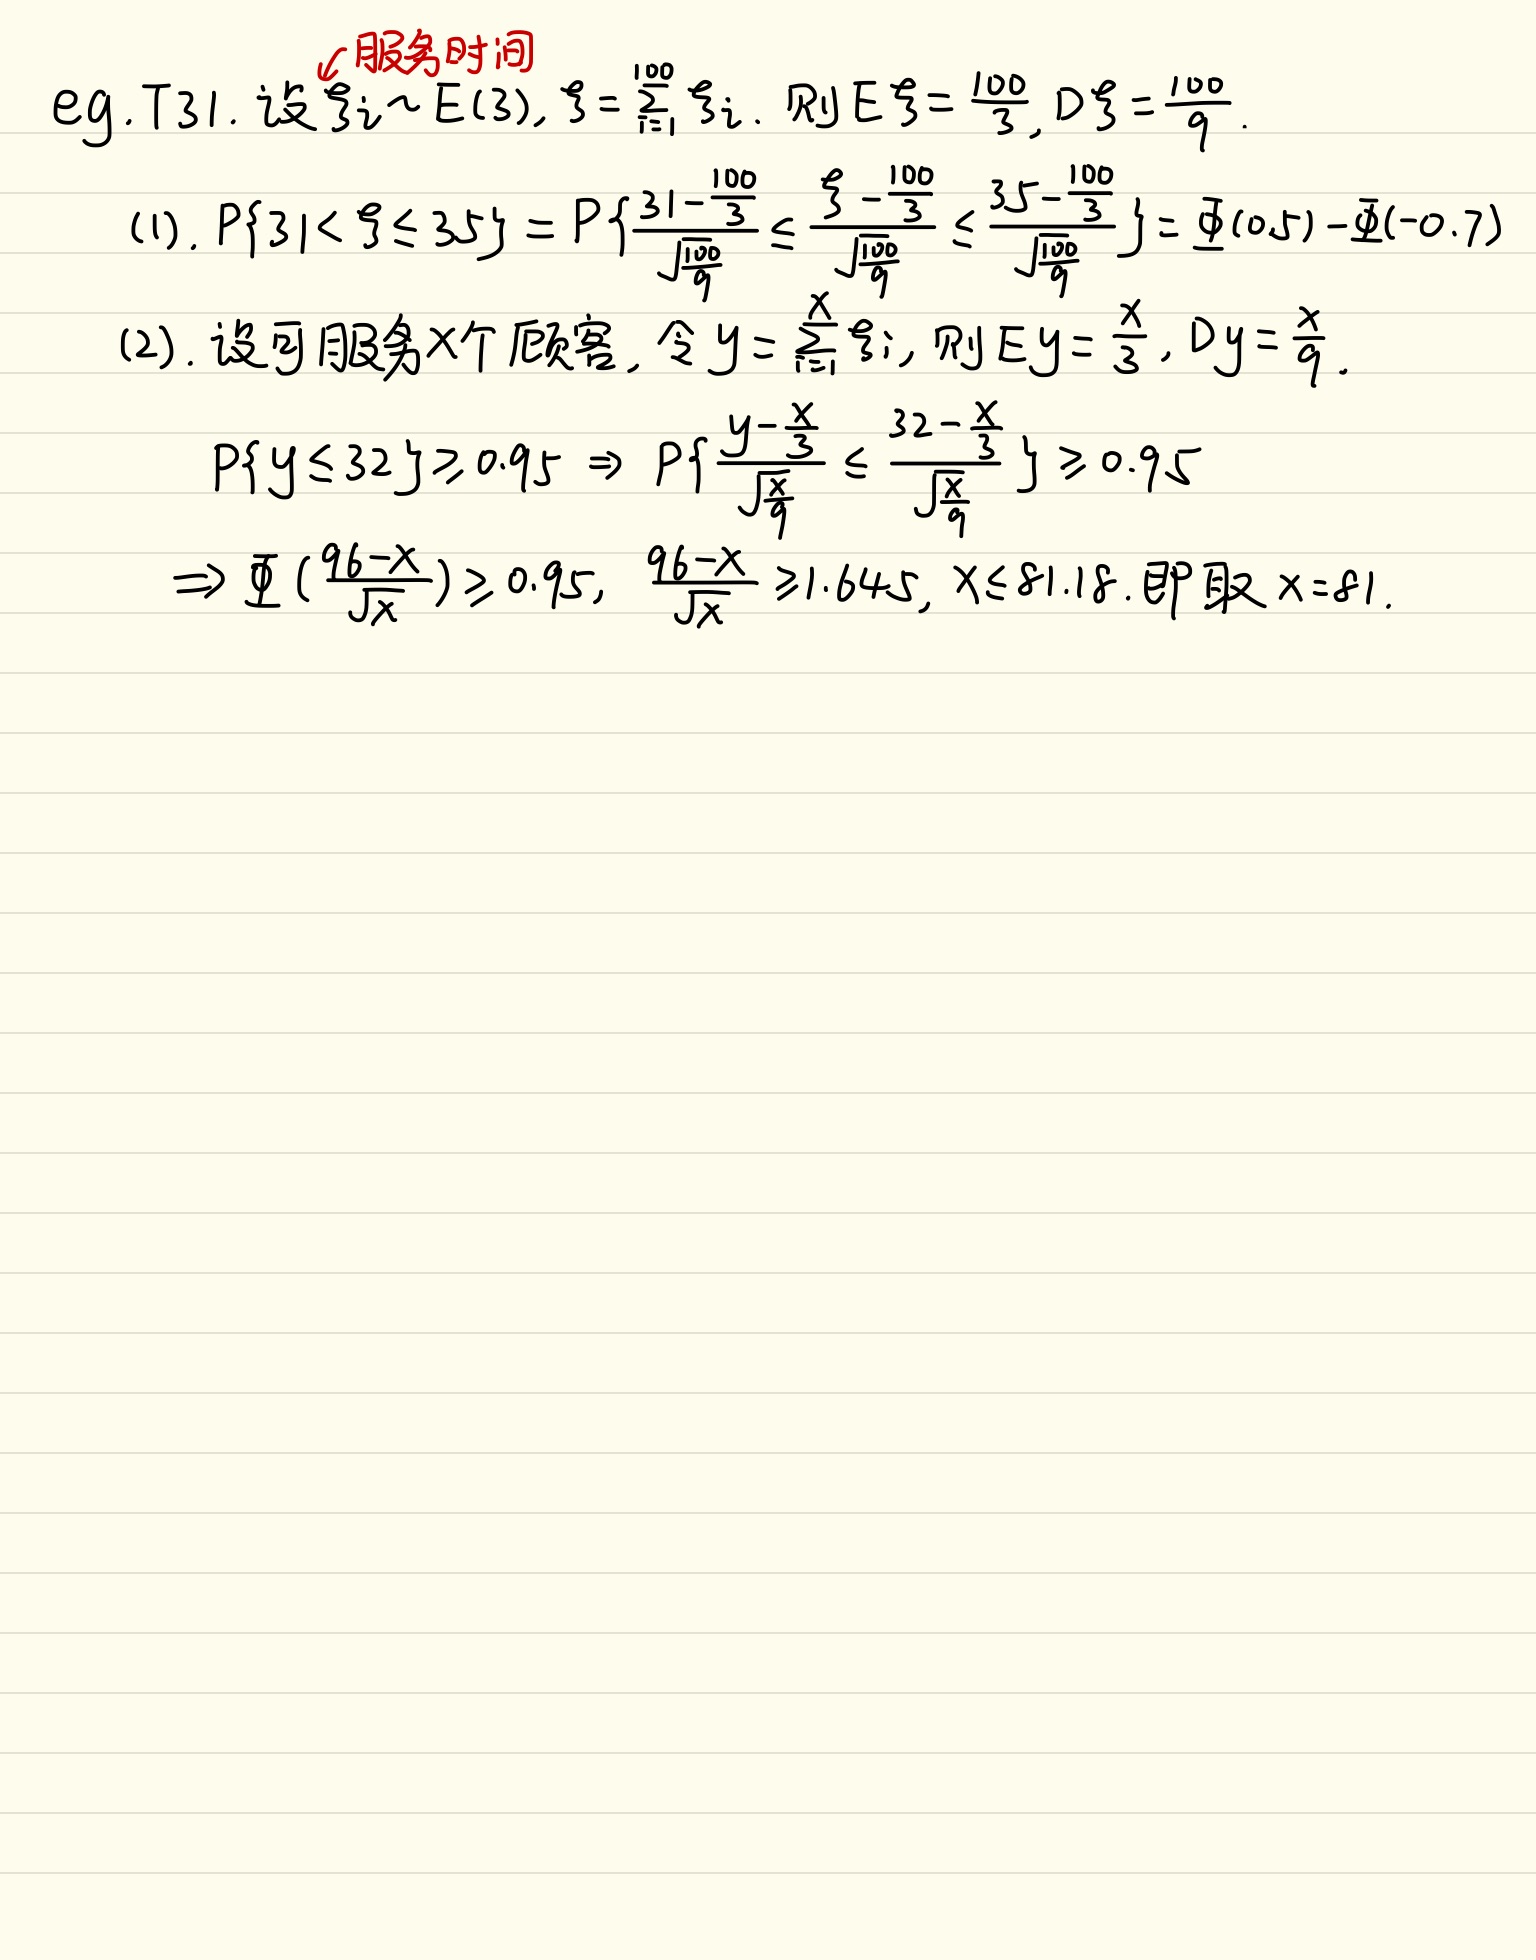 服务时间
eg.T31. 设ξi~E(3), ξ=∑_{i=1}^{100} ξi. 则Eξ=100/3, Dξ=100/9.
(1). P{31<ξ≤35} = P{(31-100/3)/√(100/9) ≤ (ξ-100/3)/√(100/9) ≤ (35-100/3)/√(100/9)} = Φ(0.5)-Φ(-0.7)
(2). 设可服务x个顾客, 令y=∑_{i=1}^{x} ξi, 则Ey=x/3, Dy=x/9.
P{y≤32}≥0.95 ⇒ P{(y-x/3)/√(x/9) ≤ (32-x/3)/√(x/9)} ≥0.95
⇒ Φ((96-x)/√x)≥0.95, (96-x)/√x ≥1.645, x≤81.18. 即取x=81.